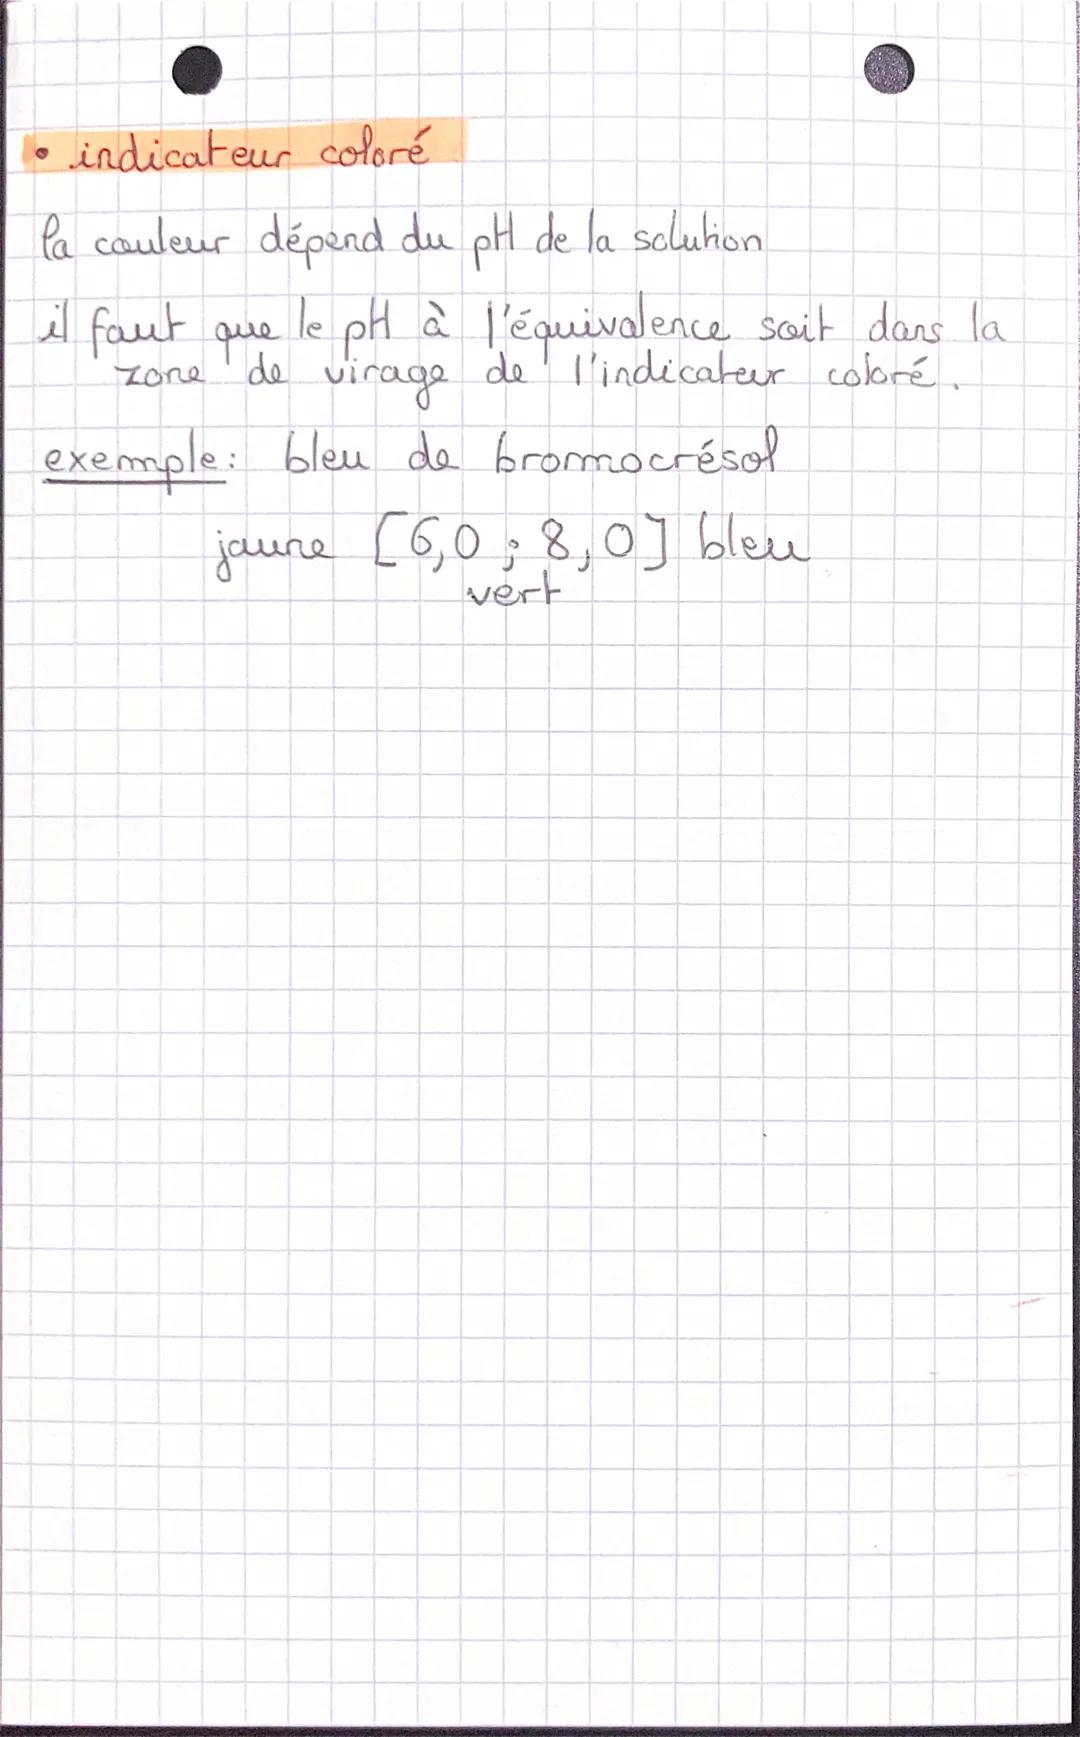 • indicateur coloré
la couleur dépend du pH de la solution
il faut que le pH à l'équivalence soit dans la
zone de virage de l'indicateur coloré.
exemple: bleu de bromocrésol
jaune [6,0 ; 8,0] bleu
vert